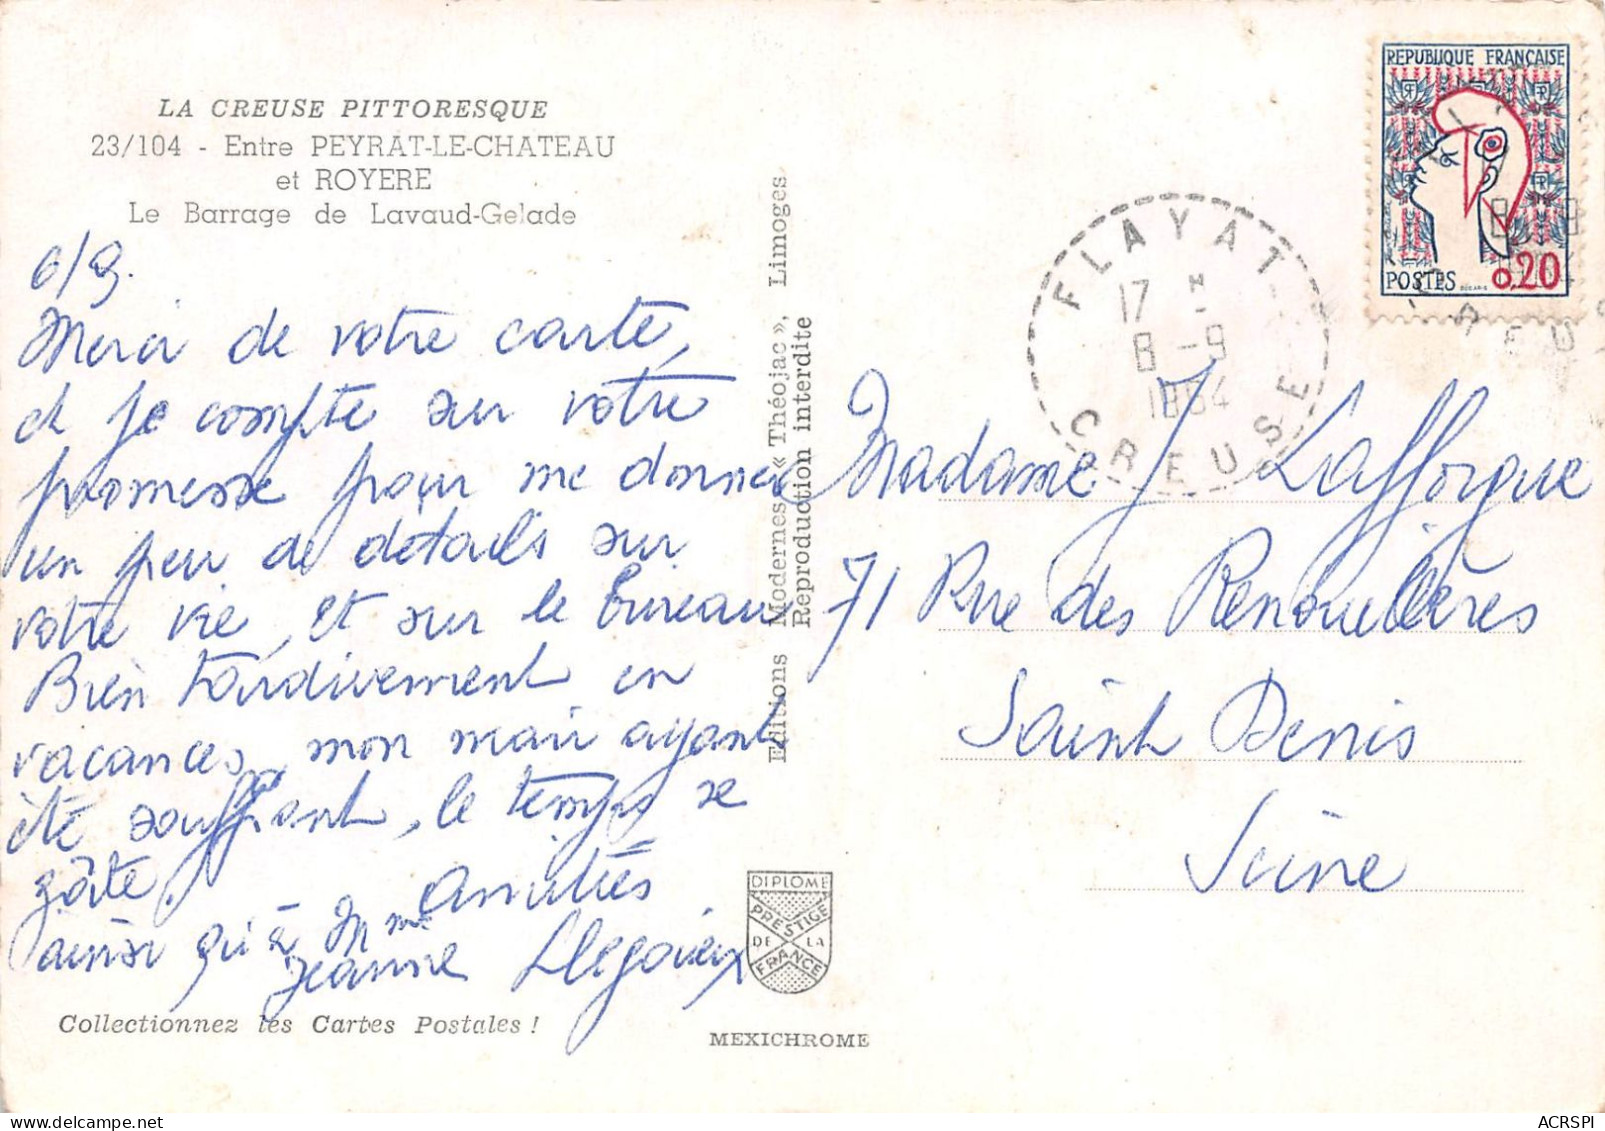 LA CREUSE PITTORESQUE
23/104 - Entre PEYRAT-LE-CHATEAU
et ROYERE
Le Barrage de Lavaud-Gelade
6/9.
Merci de votre carte,
et je compte sur votre
promesse pour me donner
un peu de détails sur
votre vie, et sur le bureau
Bien tardivement en
vacances, mon mari ayant
été souffrant, le temps se
gâte. Amitiés
ainsi qu'à Mme
Jeanne
Collectionnez les Cartes Postales !
Editions Modernes « Théojac », Limoges
Reproduction interdite
DIPLOME
PRESTIGE
DE LA
FRANCE
MEXICHROME
REPUBLIQUE FRANÇAISE
POSTES 0,20
FLAYAT
17 H
8 -9
1964
CREUSE
Madame J Lafforgue
71 Rue des Renouillères
Saint Denis
Seine
ACRSPI